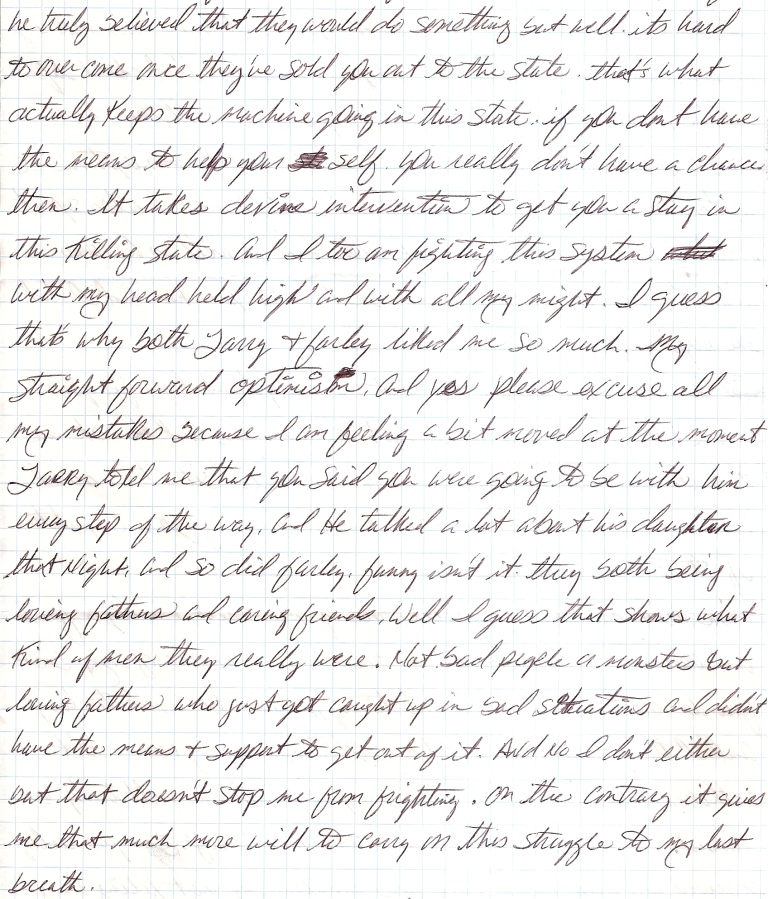 he truly believed that they would do something but well. its hard
to over come once they've sold you out to the state. that's what
actually keeps the machine going in this state. if you don't have
the means to help your self. you really don't have a chance
then. It takes devine intervention to get you a stay in
this Killing state. And I too am fighting this system
with my head held high and with all my might. I guess
that's why both Larry & farley liked me so much. My
straight forward optimism. And yes please excuse all
my mistakes because I am feeling a bit moved at the moment
Larry told me that you said you were going to be with him
every step of the way. And He talked a lot about his daughter
that Night. and so did farley. funny isn't it. they both being
loving fathers and caring friends. Well I guess that shows what
Kind of men they really were. Not bad people or monsters but
loving fathers who just got caught up in bad situations and didn't
have the means & support to get out of it. And No I don't either
but that doesn't stop me from frighting. On the contrary it gives
me that much more will to carry on this struggle to my last
breath.